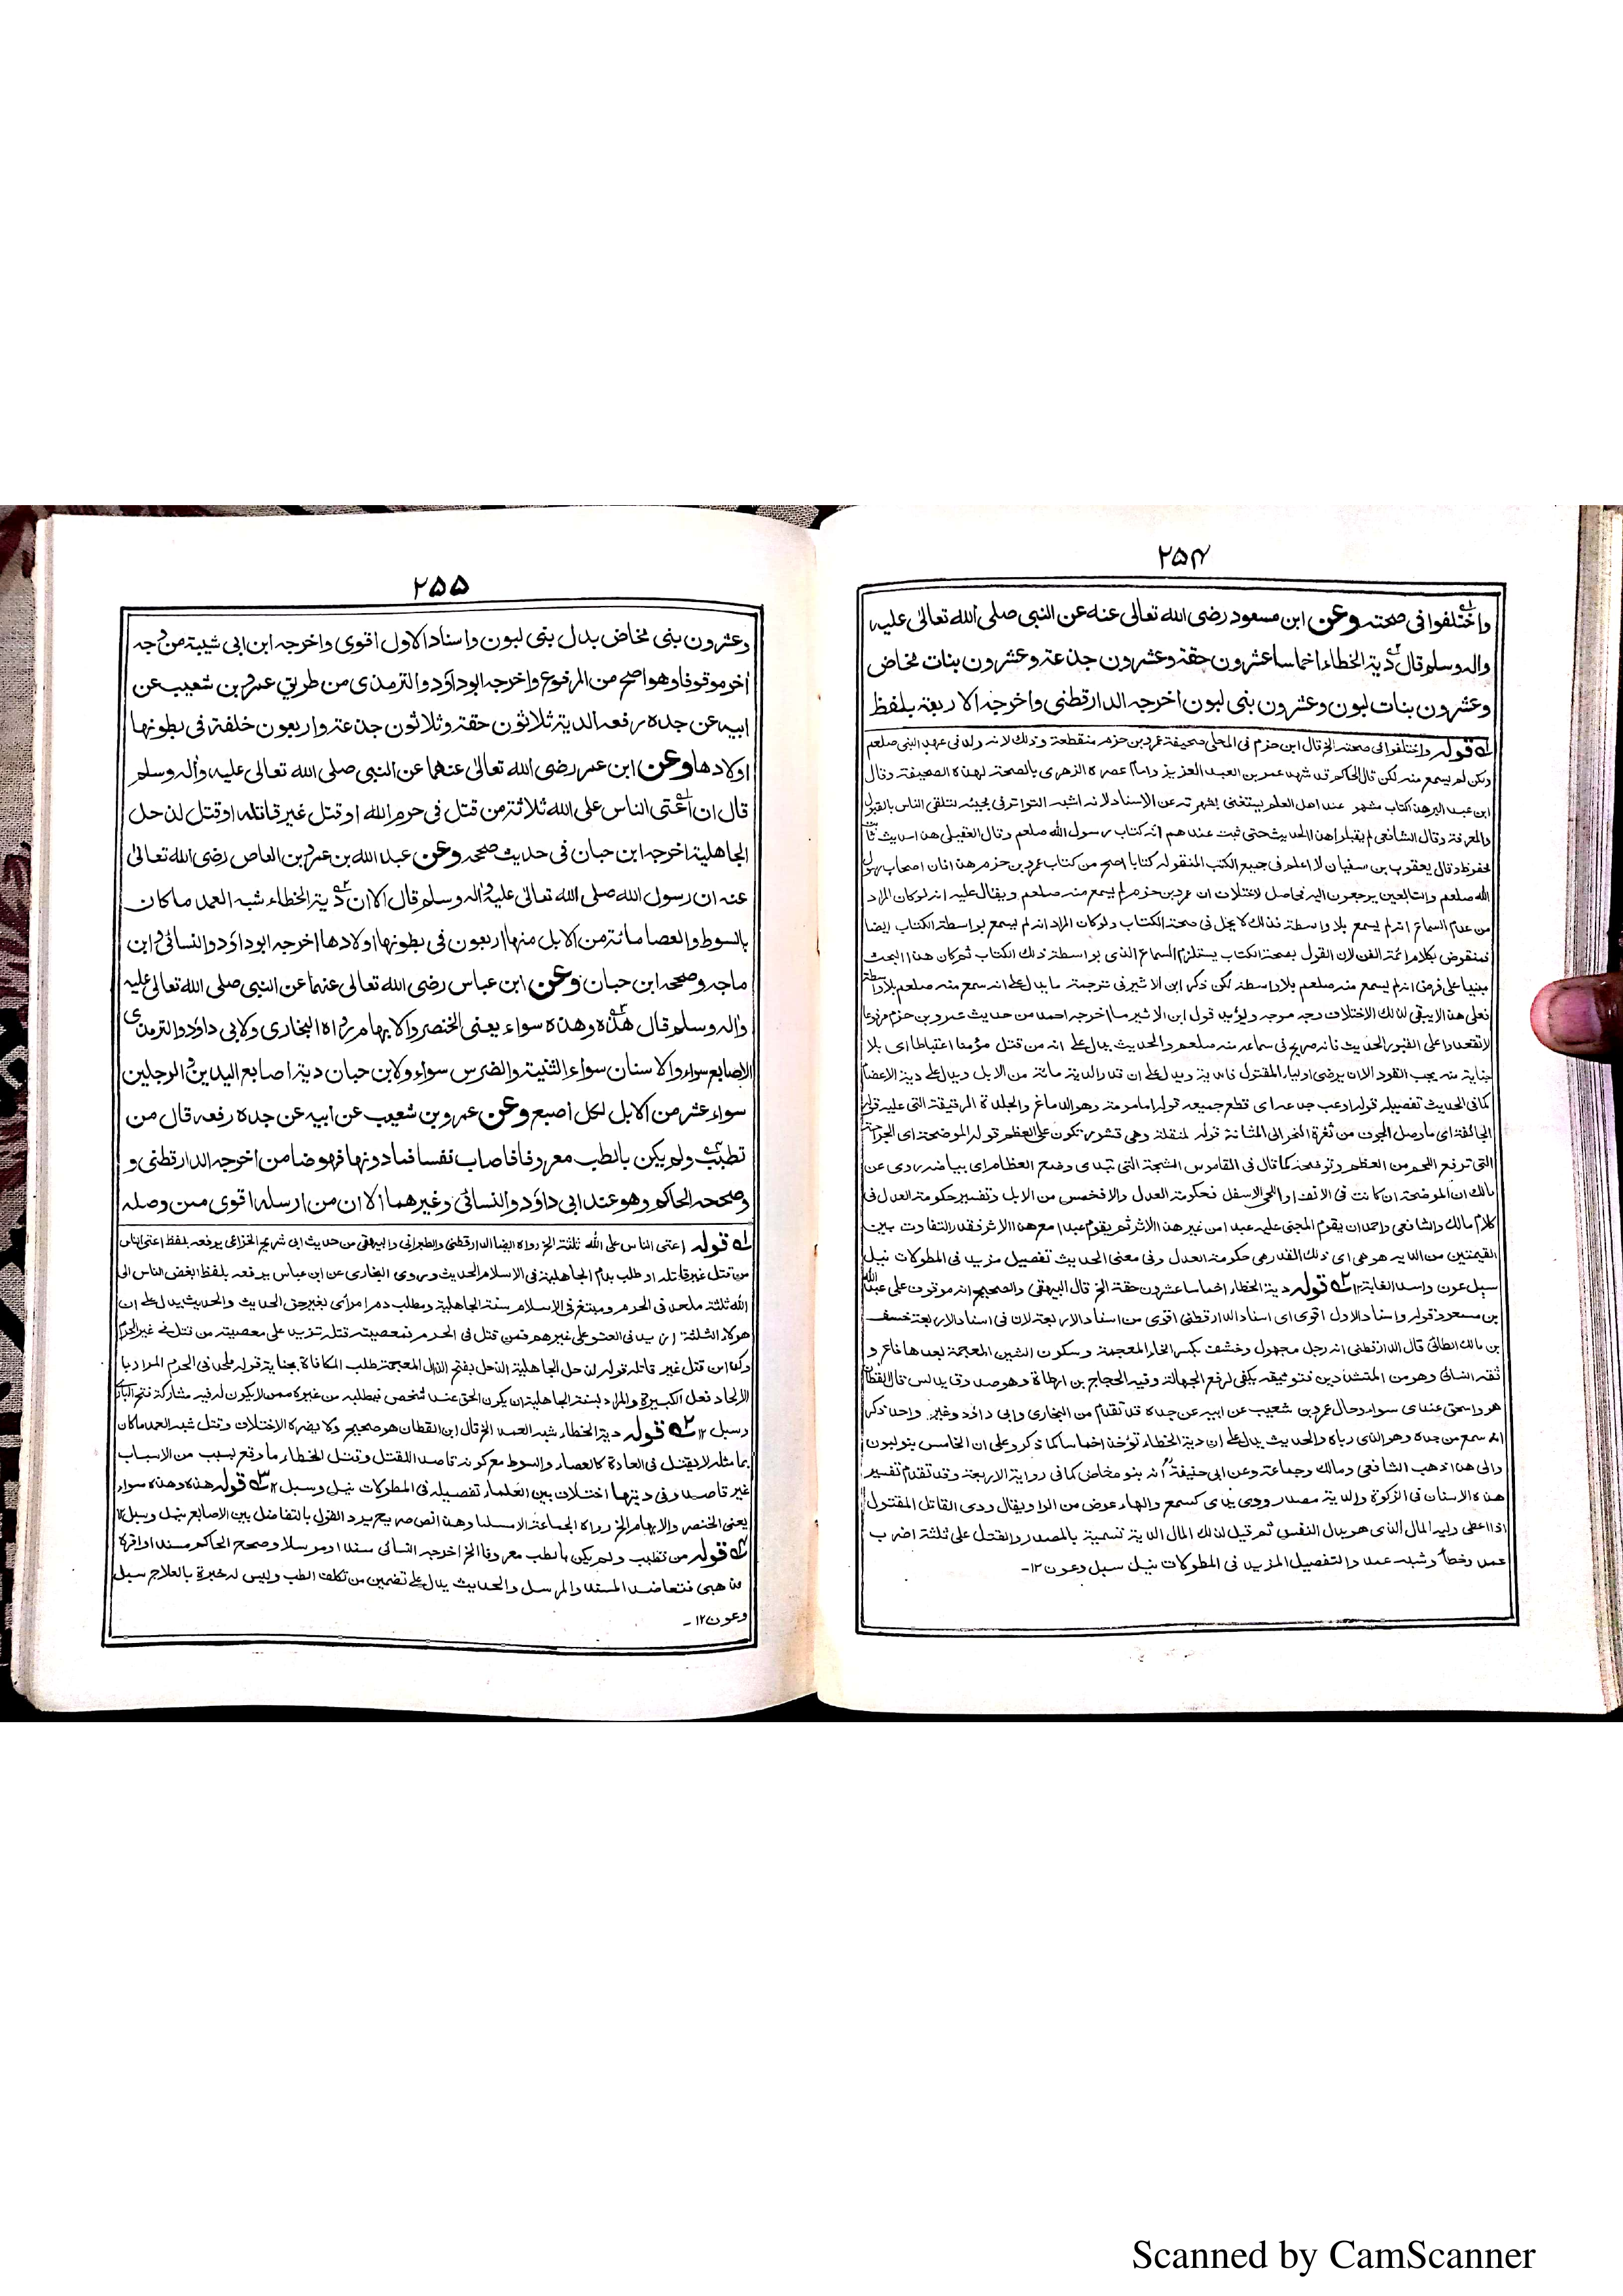 ۲۵۴
واختلفوا فی صحته وعن ابن مسعود رضی الله تعالی عنه عن النبی صلی الله تعالی علیه
واله وسلم قال دیة الخطاء اخماسا عشرون حقة وعشرون جذعة وعشرون بنات مخاض
وعشرون بنات لبون وعشرون بنی لبون اخرجه الدارقطنی واخرجه الاربعة بلفظ
له قوله واختلفوا فی صحته الخ قال ابن حزم فی المحلی صحیفة عمرو بن حزم منقطعة وذلك لانه ولد فی عهد النبی صلعم
ولكن لم یسمع منه لكن قال الحاكم قد شهد عمر بن العبد العزیز وامام عصره الزهری بالصحة لهذه الصحیفة وقال
ابن عبد البر هذا كتاب مشهور عند اهل العلم یستغنی بشهرته عن الاسناد لانه اشبه التواتر فی مجیئه لتلقی الناس بالقبول
والمعرفة وقال الشافعی لم یقبلوا هذا الحدیث حتی ثبت عندهم انه كتاب رسول الله صلعم وقال العقیلی هذا حدیث ثابت
محفوظ وقال یعقوب بن سفیان لا اعلم فی جمیع الكتب المنقولة كتابا اصح من كتاب عمرو بن حزم هذا فان اصحاب رسول
الله صلعم والتابعین یرجعون الیه فحاصل الاختلاف ان عمرو بن حزم لم یسمع منه صلعم ویقال علیه انه لو كان المراد
من عدم السماع انه لم یسمع بلا واسطة فذلك لا یخل فی صحة الكتاب ولو كان المراد انه لم یسمع بواسطة الكتاب ایضا
فمنقوض بكلام ائمة الفن لان القول بصحة الكتاب یستلزم السماع الذی بواسطة ذلك الكتاب ثم كان هذا البحث
مبنیا علی فرض انه لم یسمع منه صلعم بلا واسطة لكن ذكر ابن الاثیر فی ترجمته ما یدل علی انه سمع منه صلعم بلا واسطة
فعلی هذا لا یبقی لذلك الاختلاف وجه موجه ویؤید قول ابن الاثیر ما اخرجه احمد من حدیث عمرو بن حزم مرفوعا
لا تقعدوا علی القبور الحدیث فانه صریح فی سماعه منه صلعم والحدیث یدل علی انه من قتل مؤمنا اعتباطا ای بلا
جنایة منه یجب القود الا ان یرضی اولیاء المقتول فالدیة ویدل علی ان قدر الدیة مائة من الابل ویدل علی دیة الاعضاء
كما فی الحدیث تفصیله قوله اوعب جدعه ای قطع جمیعه قوله المامومة وهو الدماغ والجلدة الرقیقة التی علیه قوله
الجائفة ای ما وصل الجوف من ثغرة النحر الی المثانة قوله المنقلة وهی قشور تكون علی العظم قوله الموضحة ای الجراحة
التی ترفع اللحم من العظم وتوضحه كما قال فی القاموس الشجة التی تبدی وضح العظام ای بیاضه روی عن
مالك ان الموضحة ان كانت فی الانف او اللحی الاسفل فحكومة العدل والا فخمس من الابل وتفسیر حكومة العدل فی
كلام مالك والشافعی واحد ان یقوم المجنی علیه عبدا من غیر هذا الاثر ثم یقوم عبدا مع هذا الاثر فقدر التفاوت بین
القیمتین من الدیه هو هی ای ذلك القدر هی حكومة العدل وفی معنی الحدیث تفصیل مزید فی المطولات نیل
سبل عون واسد الغابة ۱۲ ۲ قوله دیة الخطاء اخماسا عشرون حقة الخ قال البیهقی والصحیح انه موقوف علی عبد الله
بن مسعود قوله واسناد الاول اقوی ای اسناد الدارقطنی اقوی من اسناد الاربعة لان فی اسناد الاربعة خشف
بن مالك الطائی قال الدارقطنی انه رجل مجهول وخشف بكسر الخاء المعجمة وسكون الشین المعجمة بعدها فاء و
ثقه النسائی وهو من المتشددین فتوثیقه یكفی لرفع الجهالة وفیه الحجاج بن ارطاة وهو صدوق یدلس قال القطان
هو واسحق عندی سواء وحال عمرو بن شعیب عن ابیه عن جده قد تقدم من البخاری وابی داؤد وغیر واحد ذكر
انه سمع من جده وهو الذی رباه والحدیث یدل علی ان دیة الخطاء تؤخذ اخماسا كما ذكر وعلی ان الخامس بنو لبون
والی هذا ذهب الشافعی ومالك وجماعة وعن ابی حنیفة انه بنو مخاض كما فی روایة الاربعة وقد تقدم تفسیر
هذه الاسنان فی الزكوة والدیة مصدر ودی یدی كسمع والهاء عوض من الواو یقال ودی القاتل المقتول
اذا اعطی ولیه المال الذی هو بدل النفس ثم قیل لذلك المال الدیة تسمیة بالمصدر والقتل علی ثلثة اضرب
عمد وخطأ وشبه عمد والتفصیل المزید فی المطولات نیل سبل وعون ۱۲-
۲۵۵
وعشرون بنی مخاض بدل بنی لبون واسناد الاول اقوی واخرجه ابن ابی شیبة من وجه
اخر موقوفا وهو اصح من المرفوع واخرجه ابو داؤد والترمذی من طریق عمرو بن شعیب عن
ابیه عن جده رفعه الدیة ثلاثون حقة وثلاثون جذعة واربعون خلفة فی بطونها
اولادها وعن ابن عمر رضی الله تعالی عنهما عن النبی صلی الله تعالی علیه واله وسلم
قال ان اعتی الناس علی الله ثلاثة من قتل فی حرم الله او قتل غیر قاتله او قتل لذحل
الجاهلیة اخرجه ابن حبان فی حدیث صححه وعن عبد الله بن عمرو بن العاص رضی الله تعالی
عنه ان رسول الله صلی الله تعالی علیه واله وسلم قال الا ان دیة الخطاء شبه العمد ما كان
بالسوط والعصا مائة من الابل منها اربعون فی بطونها اولادها اخرجه ابو داؤد والنسائی وابن
ماجه وصححه ابن حبان وعن ابن عباس رضی الله تعالی عنهما عن النبی صلی الله تعالی علیه
واله وسلم قال هذه وهذه سواء یعنی الخنصر والابهام رواه البخاری ولابی داؤد والترمذی
الاصابع سواء والاسنان سواء الثنیة والضرس سواء ولابن حبان دیة اصابع الیدین والرجلین
سواء عشر من الابل لكل اصبع وعن عمرو بن شعیب عن ابیه عن جده رفعه قال من
تطبب ولم یكن بالطب معروفا فاصاب نفسا فما دونها فهو ضامن اخرجه الدارقطنی و
وصححه الحاكم وهو عند ابی داؤد والنسائی وغیرهما الا ان من ارسله اقوی ممن وصله
له قوله اعتی الناس علی الله ثلثة الخ رواه ایضا الدارقطنی والطبرانی والبیهقی من حدیث ابی شریح الخزاعی یرفعه بلفظ اعتی الناس
من قتل غیر قاتله او طلب بدم الجاهلیة فی الاسلام الحدیث وروی البخاری عن ابن عباس یرفعه بلفظ ابغض الناس الی
الله ثلثة ملحد فی الحرم ومبتغ فی الاسلام سنة الجاهلیة ومطلب دم امرأی بغیر حق الحدیث والحدیث یدل علی ان
هولاء الثلثة ازید فی العتو علی غیرهم فمن قتل فی الحرم فمعصیته قتله تزید علی معصیته من قتل فی غیر الحرم
وكذا من قتل غیر قاتله قوله لذحل الجاهلیة الذحل بفتح الذال المعجمة طلب المكافاة بجنایة قوله ملحد فی الحرم المراد با
الالحاد فعل الكبیرة والمراد بسنة الجاهلیة ان یكون الحق عند شخص فیطلبه من غیره ممن لا یكون له فیه مشاركة فتح الباری
وسبل ۱۲ ۲ قوله دیة الخطاء شبه العمد الخ قال ابن القطان هو صحیح ولا یضره الاختلاف وقتل شبه العمد ما كان
بما مثله لا یقتل فی العادة كالعصا والسوط مع كونه قاصدا للقتل وقتل الخطاء ما وقع بسبب من الاسباب
غیر قاصد وفی دیتها اختلاف بین العلماء تفصیله فی المطولات نیل وسبل ۱۲ ۳ قوله هذه وهذه سواء
یعنی الخنصر والابهام الخ رواه الجماعة الا مسلما وهذا نص صریح یرد القول بالتفاضل بین الاصابع نیل وسبل ۱۲
۴ قوله من تطبب ولم یكن بالطب معروفا الخ اخرجه النسائی مسندا ومرسلا وصحح الحاكم مسندا واقره
الذهبی فتعاضد المسند والمرسل والحدیث یدل علی تضمین من تكلف الطب ولیس له خبرة بالعلاج سبل
وعون ۱۲-
Scanned by CamScanner